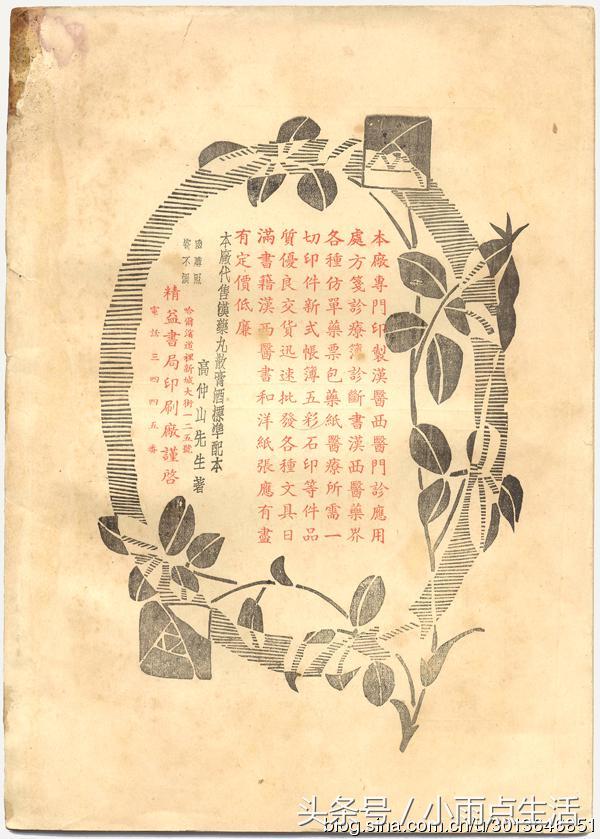 本廠專門印製漢醫西醫門診應用
處方箋診療簿診斷書漢西醫藥界
各種仿單藥票包藥紙醫療所需一
切印件新式帳簿五彩石印等件品
質優良交貨迅速批發各種文具日
滿書籍漢西醫書和洋紙張應有盡
有定價低廉
本廠代售漢藥丸散膏酒標準配本
高仲山先生著
哈爾濱道裡新城大街一二五號
精益書局印刷廠謹啓
電話三四四五番
头条号／小雨点生活
blog.sina.com.cn/u/3013646851